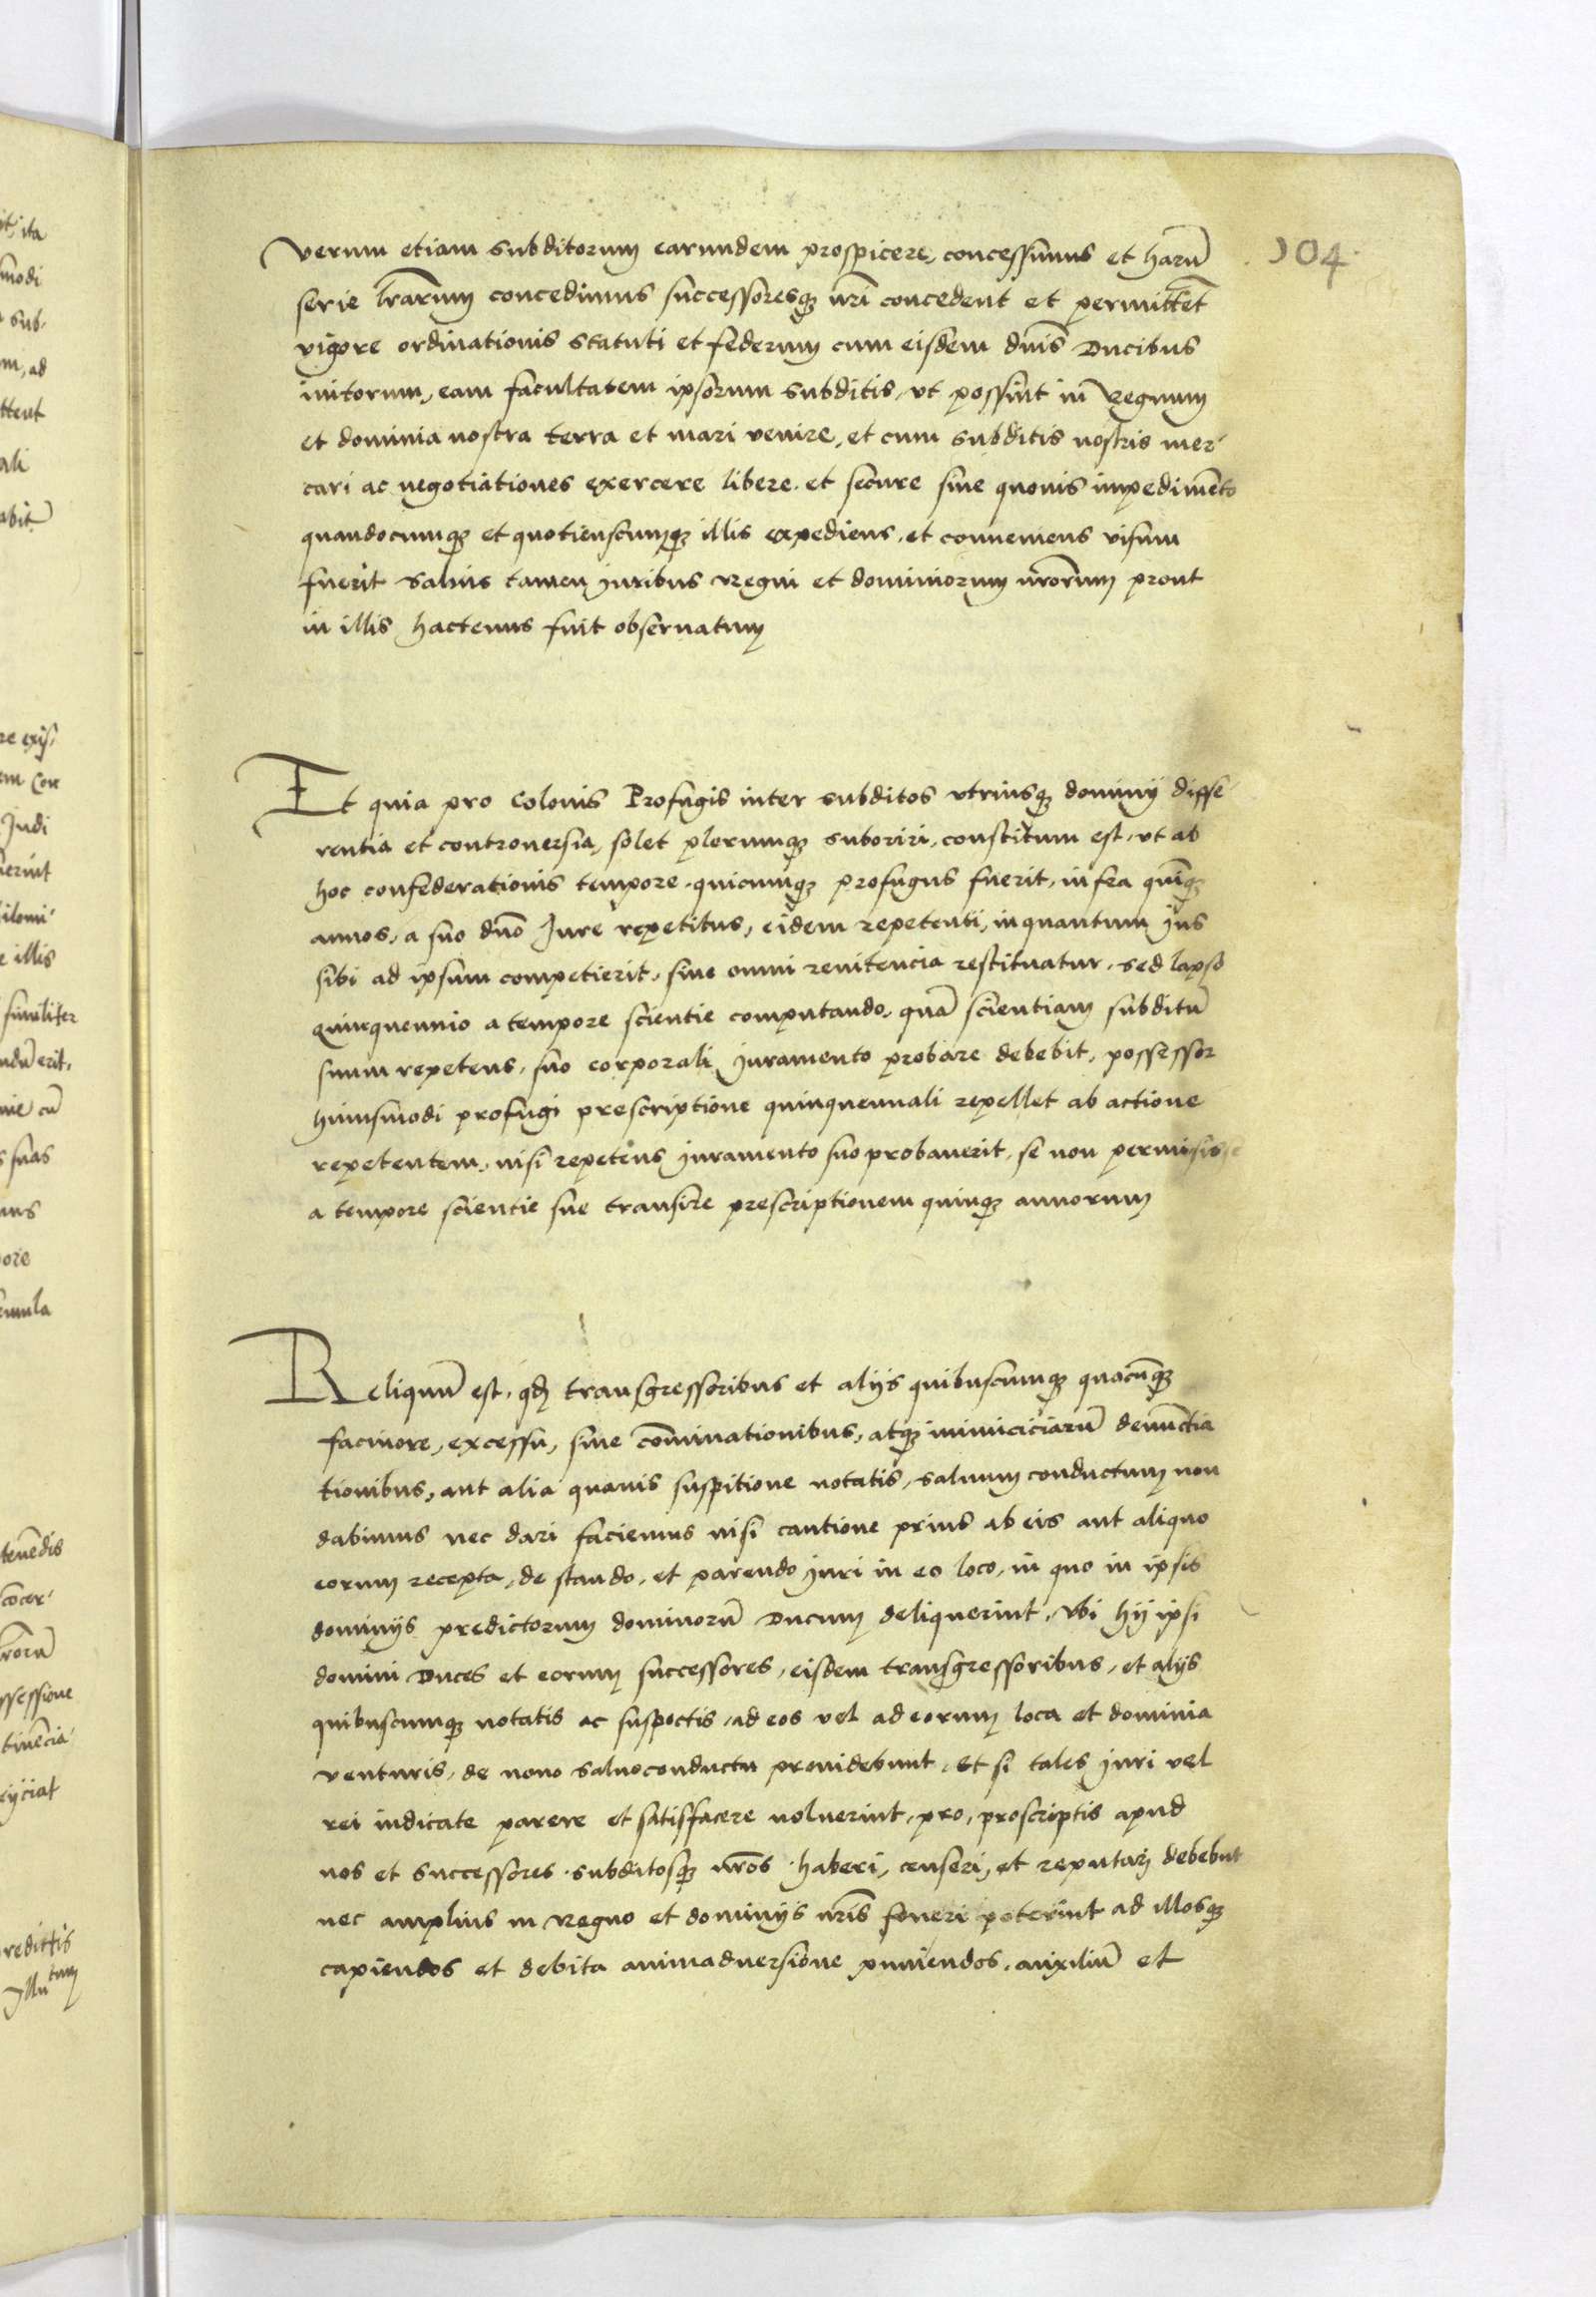 104
verum etiam subditorum earundem prospicere, concessimus et harū
serie lr̄arum concedimus successoresqꝫ nr̄i concedent et permittēt
vigore ordinationis statuti et federum cum eisdem dn̄is Ducibus
initorum, eam facultatem ipsorum subditis, ut possint in Regnum
et dominia nostra terra et mari venire, et cum subditis nostris mer-
cari ac negotiationes exercere libere et secure sine quovis impedimēto
quandocumqꝫ et quotienscumqꝫ illis expediens, et conveniens visum
fuerit salvis tamen juribus Regni et dominiorum nr̄orum prout
in illis hactenus fuit observatum
Et quia pro Colonis Profugis inter subditos utriusqꝫ dominij diffe-
rentia et controversia, solet plerumqꝫ suboriri, constitum est, ut ab
hoc confederationis tempore quicumqꝫ profugus fuerit, infra quīqꝫ
annos, a suo dn̄o Jure repetitus, eidem repetenti, inquantum jus
sibi ad ipsum competierit, sine omni renitencia restituatur, sed lapso
quinquennio a tempore scientie computando, quā scientiam subditū
suum repetens, suo corporali juramento probare debebit, possessor
huiusmodi profugi prescriptione quinquennali repellet ab actione
repetentem, nisi repetens juramento suo probaverit, se non permisisse
a tempore scientie sue transire prescriptionem quinqꝫ annorum
Reliquū est, qđ transgressoribus et alijs quibuscumqꝫ quacūqꝫ
facinore, excessu, sive cōminationibus, atqꝫ inimiciciarū denūctia
tionibus, aut alia quavis suspitione notatis, salvum conductum non
dabimus nec dari faciemus nisi cautione prius ab eis aut aliquo
eorum recepta, de stando, et parendo juri in eo loco, in quo in ipsis
dominijs predictorum dominorū Ducum deliquerint, Ubi hij ipsi
domini Duces et eorum successores, eisdem transgressoribus, et alijs
quibuscumqꝫ notatis ac suspectis, ad eos vel ad eorum loca et dominia
venturis, de novo salvoconductu providebunt, Et si tales juri vel
rei iudicate parere et satisfacere noluerint, pro, proscriptis apud
nos et successores subditosqꝫ nr̄os haberi, censeri, et reputari debebūt
nec amplius in Regno et dominijs nr̄is foveri poterint ad illosqꝫ
capiendos et debita animadversione puniendos, auxiliū et